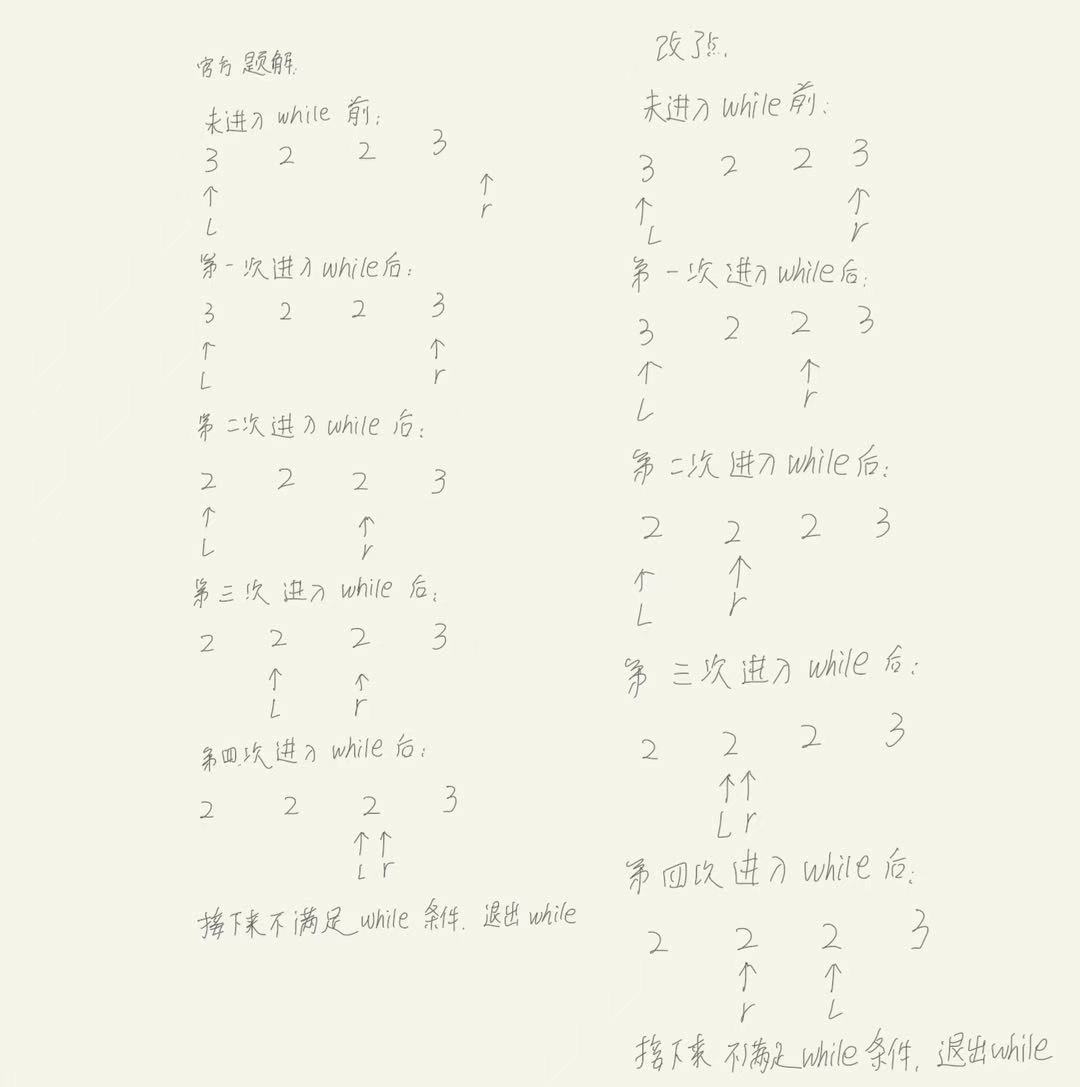 官方题解:
未进入while 前:
3 2 2 3
↑ ↑
L r
第一次进入while后:
3 2 2 3
↑ ↑
L r
第二次进入while后:
2 2 2 3
↑ ↑
L r
第三次进入while后:
2 2 2 3
↑ ↑
L r
第四次进入while后:
2 2 2 3
↑↑
L r
接下来不满足while条件.退出while
改了点.
未进入while前:
3 2 2 3
↑ ↑
L r
第一次进入while后:
3 2 2 3
↑ ↑
L r
第二次进入while后:
2 2 2 3
↑ ↑
L r
第三次进入while后:
2 2 2 3
↑↑
L r
第四次进入while后:
2 2 2 3
↑ ↑
r L
接下来不满足while条件,退出while